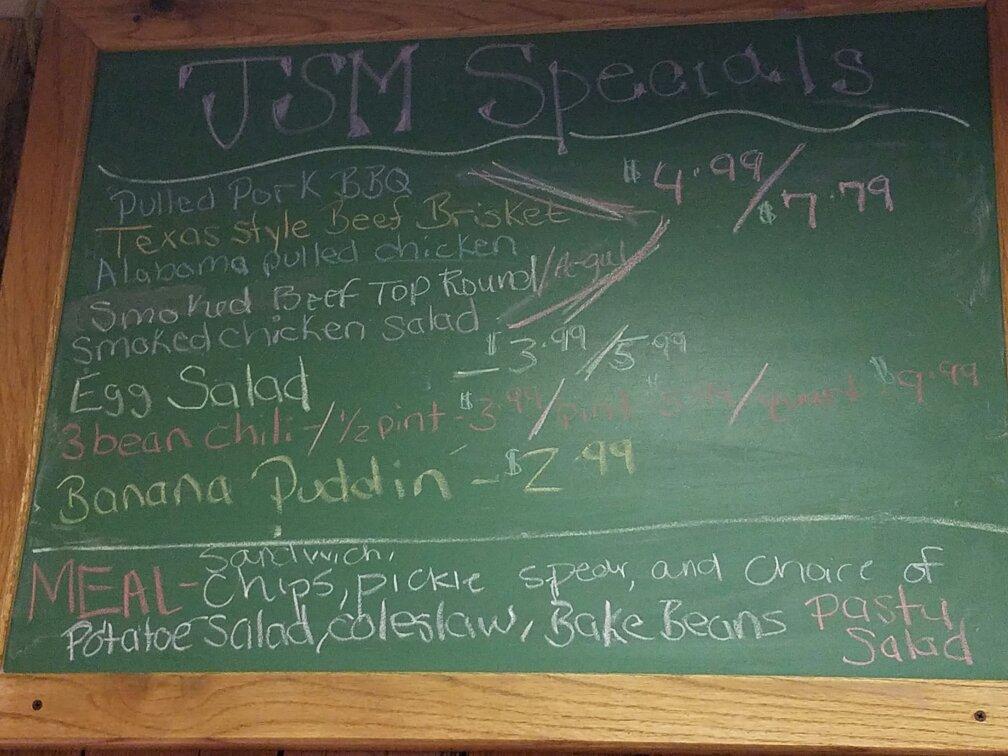 JSM Specials
Pulled Pork BBQ
$4.99/$7.79
Texas style Beef Brisket
Alabama pulled chicken
Smoked Beef Top Round/
Smoked chicken salad
Egg Salad $3.99/5.99
3 bean chili - / 1/2 pint - $3.99 / pint $5.99 / quart $9.99
Banana Puddin - $2.99
Sandwich,
MEAL - Chips, pickle spear, and choice of
Potatoe Salad, coleslaw, Bake Beans Pasta
Salad